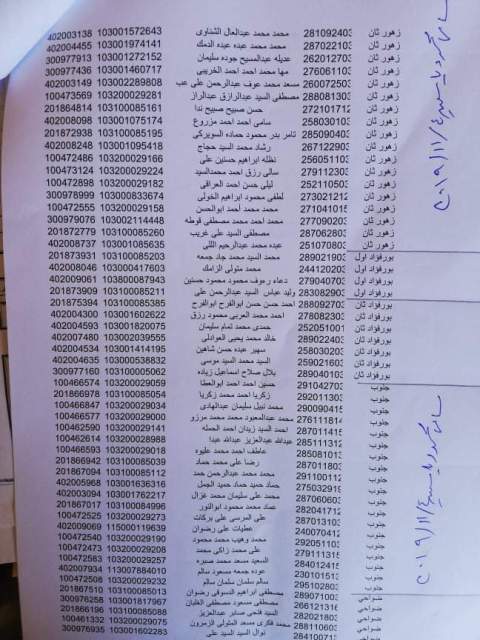 402003138 103001572643 محمد محمد عبدالعال الشناوى 281092403 زهور ثان
402004455 103001974141 محمد محمد عبده عبده الدمك 287022103 زهور ثان
300977913 103001272152 عديله عبدالمسيح جوده سليمان 262012703 زهور ثان
300977436 103001460717 مها محمد احمد احمد الخريبى 276061103 زهور ثان
402003149 103002289808 مسعد محمد عوف عبدالرحمن على عب 260072503 زهور ثان
100473569 103200029281 مصطفى السيد عبدالرازق عبدالراز 288081303 زهور ثان
201864814 103100085161 حسن صبيح صبيح ندا 272101712 زهور ثان
402008098 103001075174 سامى احمد احمد مزروع 258030103 زهور ثان
201872938 103100085195 تامر بدر محمود حماده السويركى 285090403 زهور ثان
402008248 103001095418 رشاد محمد السيد حجاج 267122903 زهور ثان
100472486 103200029166 نظله ابراهيم حسنين على 256051103 زهور ثان
100473124 103200029224 سالى رزق احمد محمدالسيد 279112303 زهور ثان
100472898 103200029182 ليلى حسن احمد العراقى 252110503 زهور ثان
300978999 103000833674 لطفى محمود ابراهيم الخولى 273021212 زهور ثان
100472555 103200029158 محمد محمد أحمد ابوالحسن 271041012 زهور ثان
300979076 103002114448 محمد احمد محمد مصطفى فوطه 277090203 زهور ثان
201872779 103100085260 مصطفى السيد على غريب 287062803 زهور ثان
402008737 103001085635 عبده محمد عبدالرحيم اللثى 251070803 زهور ثان
201873931 103100085203 محمد السيد محمد جاد جمعه 289021903 بورفؤاد اول
402008046 103000417603 محمد متولى الزامك 244120203 بورفؤاد اول
402009061 103800087943 دعاء رءوف محمود محمود حسنين 279040703 بورفؤاد اول
201873909 103100085211 وليد عباس السيد عبدالرحمن على 283082903 بورفؤاد اول
201875394 103100085385 احمد حسن حسن ابوالفرح ابوالفرح 288092703 بورفؤاد ثان
402004300 103001602622 احمد محمد العربى محمود رزق 278082303 بورفؤاد ثان
402004593 103001820075 حمدى محمد تمام سليمان 252051001 بورفؤاد ثان
402007480 103002039555 خالد محمد يحيى العوادلى 289022403 بورفؤاد ثان
402004534 103001414195 سهير عبده حسن شاهين 258030203 بورفؤاد ثان
402004635 103000538832 السيد محمد السيد موسى 259021603 بورفؤاد ثان
300977160 103100005062 بلال صلاح اسماعيل زياده 289040103 بورفؤاد ثان
100466574 103200029059 حسين احمد احمد ابوالعطا 291042703 جنوب
201866978 103100085054 زكريا احمد محمد زكريا 292011303 جنوب
100466847 103200029034 محمد نبيل سليمان عبدالهادى 290090415 جنوب
100466577 103200029000 محمد عبدالمعبود محمد محمد مرزو 276111814 جنوب
100462590 103200029141 احمد السيد زيدان احمد الجمله 287011415 جنوب
100462614 103200028988 عبدالله عبدالعزيز عبدالله عبدا 285111312 جنوب
100466593 103200029018 عاطف احمد محمد عليوه 285081013 جنوب
201866942 103100085109 رضا على محمد حماد 287011803 جنوب
201867094 103100085112 محمد محمد عبدالرحمن حمد 291100112 جنوب
402005968 103001636316 حماد حميد حماد حميد الجمل 275032919 جنوب
402003094 103001762217 محمد على سليمان محمد غزال 287060603 جنوب
201867017 103100084996 عماد محمد محمود ابوالنور 282041712 جنوب
100472525 103200029273 على المرسى على بركات 287013103 جنوب
402009069 115000119639 عطيات على رضوان 240070412 جنوب
100472540 103200029190 محمد وهيب محمد محمود 292051103 جنوب
100472473 103200029208 على محمد زاكى محمد 279111315 جنوب
100472583 103200029257 السعيد محمد محمد صبره 284012415 جنوب
402007934 113007884010 عوده جمعه مسعود سالم 230101513 جنوب
100472508 103200029232 سالم سلمان سلمان سالم 295102803 جنوب
201867510 103100085013 مصطفى ابراهيم الدسوقى رضوان 289071003 ضواحى
300978258 103001817967 مصطفى مسعود مصطفى الغلبان 266121316 ضواحى
201866196 103100085088 السيد فتحى صابر عبدالعزيز
100461332 103200029075 محمد فكرى محمد المتولى الزمزون 282021203 ضواحى
300976935 103001602283 نوال السيد السيد على 281110603 ضواحى